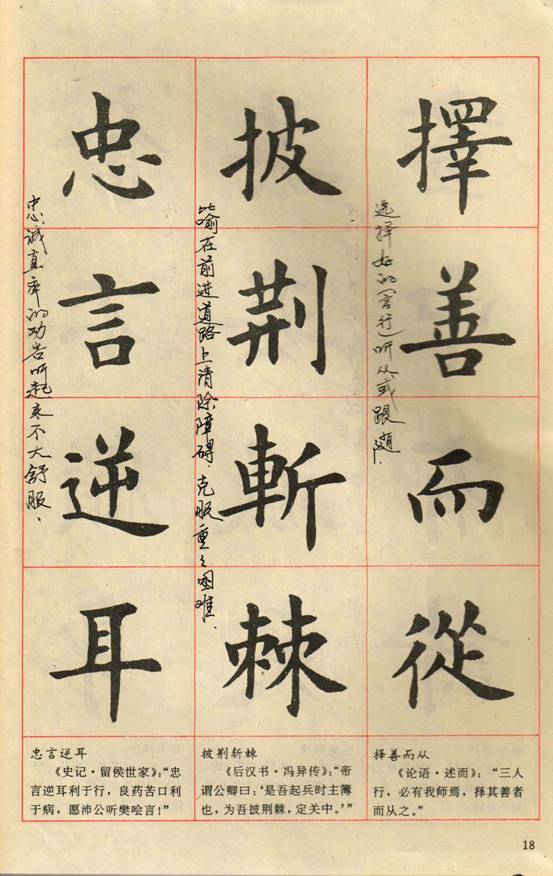 擇善而從
选择好的(言行)听从或跟随.
披荆斬棘
比喻在前进道路上清除障碍.克服重重困难.
忠言逆耳
忠诚直率的劝告听起来不大舒服.
择善而从
《论语·述而》：“三人
行，必有我师焉，择其善者
而从之。”
披荆斩棘
《后汉书·冯异传》：“帝
谓公卿曰：‘是吾起兵时主簿
也，为吾披荆棘，定关中。’”
忠言逆耳
《史记·留侯世家》：“忠
言逆耳利于行，良药苦口利
于病，愿沛公听樊哙言！”
18